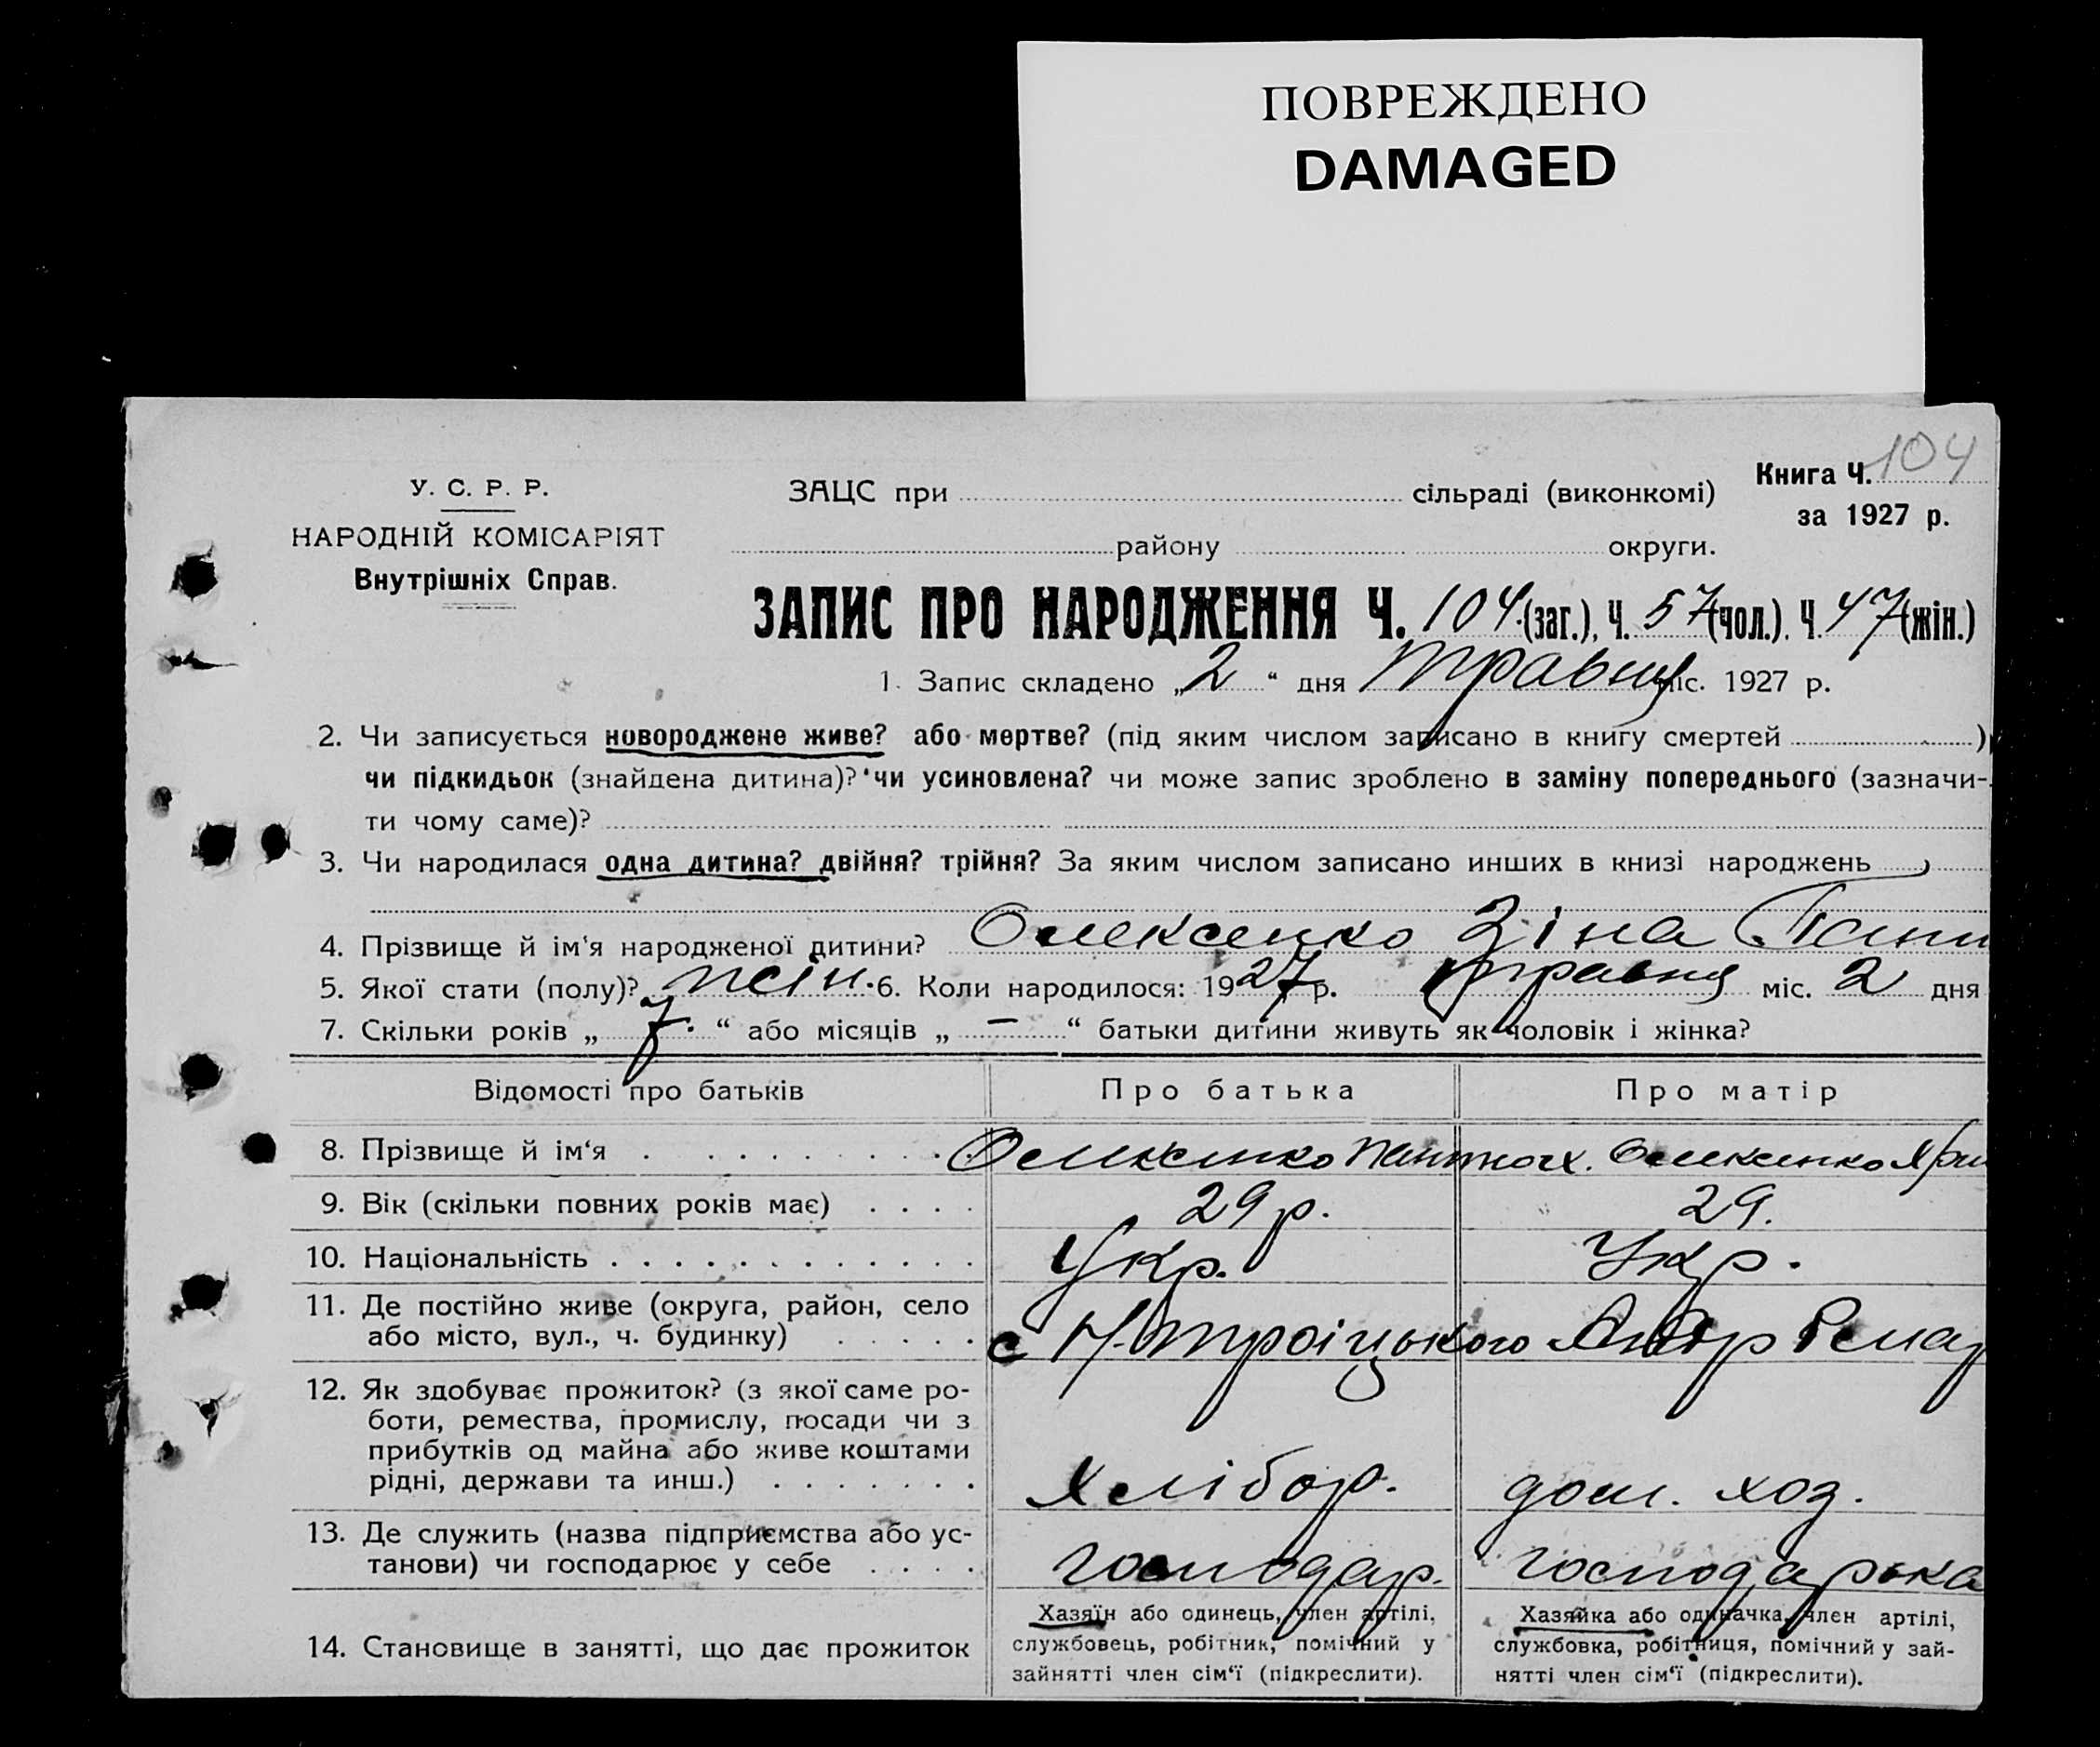 ПОВРЕЖДЕНО
DAMAGED
У. С. Р. Р.
НАРОДНІЙ КОМІСАРІЯТ
Внутрішніх Справ.
ЗАЦС при сільраді (виконкомі)
Книга Ч. 104
за 1927 р.
району округи.
ЗАПИС ПРО НАРОДЖЕННЯ Ч. 104 (заг.), Ч. 57 (чол.). Ч. 47 (жін.)
1. Запис складено „2“ дня травня міс. 1927 р.
2. Чи записується новороджене живе? або мертве? (під яким числом записано в книгу смертей )
чи підкидьок (знайдена дитина)? чи усиновлена? чи може запис зроблено в заміну попереднього (зазначи-
ти чому саме)?
3. Чи народилася одна дитина? двійня? трійня? За яким числом записано инших в книзі народжень
4. Прізвище й ім'я народженої дитини? Олексенко Зіна
5. Якої стати (полу)? жін. 6. Коли народилося: 1927 р. травня міс. 2 дня
7. Скільки років „7.“ або місяців „–“ батьки дитини живуть як чоловік і жінка?
Відомості про батьків Про батька Про матір
8. Прізвище й ім‘я . . . . . . . . . Олексенко Олексенко
9. Вік (скільки повних років має) . . . . 29 р. 29.
10. Національність . . . . . . . . . . . . Укр. Укр.
11. Де постійно живе (округа, район, село
або місто, вул., ч. будинку) . . . . . с Н. троіцького
12. Як здобуває прожиток? (з якої саме ро-
боти, ремества, промислу, посади чи з
прибутків од майна або живе коштами
рідні, держави та инш.) . . . . . . . Хлібор. дом. хоз.
13. Де служить (назва підприємства або ус-
танови) чи господарює у себе . . . . господар. господарька
14. Становище в занятті, що дає прожиток
Хазяїн або одинець, член артілі,
службовець, робітник, помічний у
зайнятті член сім‘ї (підкреслити).
Хазяйка або одиначка, член артілі,
службовка, робітниця, помічний у зай-
нятті член сім‘ї (підкреслити).